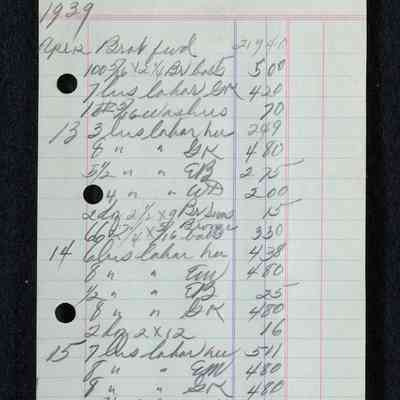 1939
Apr 12 Brot fwd 219 41
100 5/16 x 2 1/4 Br bolts 5 00
7 hrs labor GK 4 20
1 washers 70
13 3 hrs labor 2 19
8 " " GK 4 80
5 1/2 " " EB 2 75
4 " " WD 2 00
2 dg 2 1/2 x 9 Br Scws 15
bolts 3 30
14 6 hrs labor 4 38
8 " " EM 4 80
1/2 " " EB 25
8 " " GK 4 80
2 dg 2 x 12 16
15 7 hrs labor 5 11
8 " " EM 4 80
8 " " GK 4 80